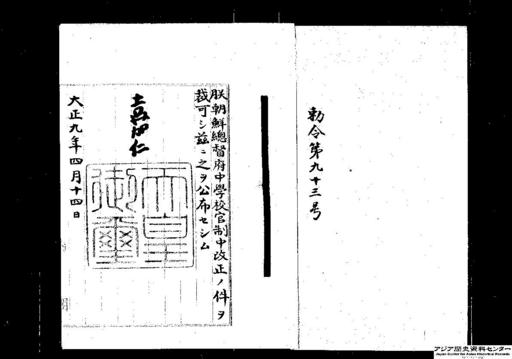 勅令第九十三号
朕朝鮮總督府中學校官制中改正ノ件ヲ
裁可シ茲ニ之ヲ公布セシム
嘉仁
天皇御璽
大正九年四月十四日
アジア歴史資料センター
Japan Center for Asian Historical Records